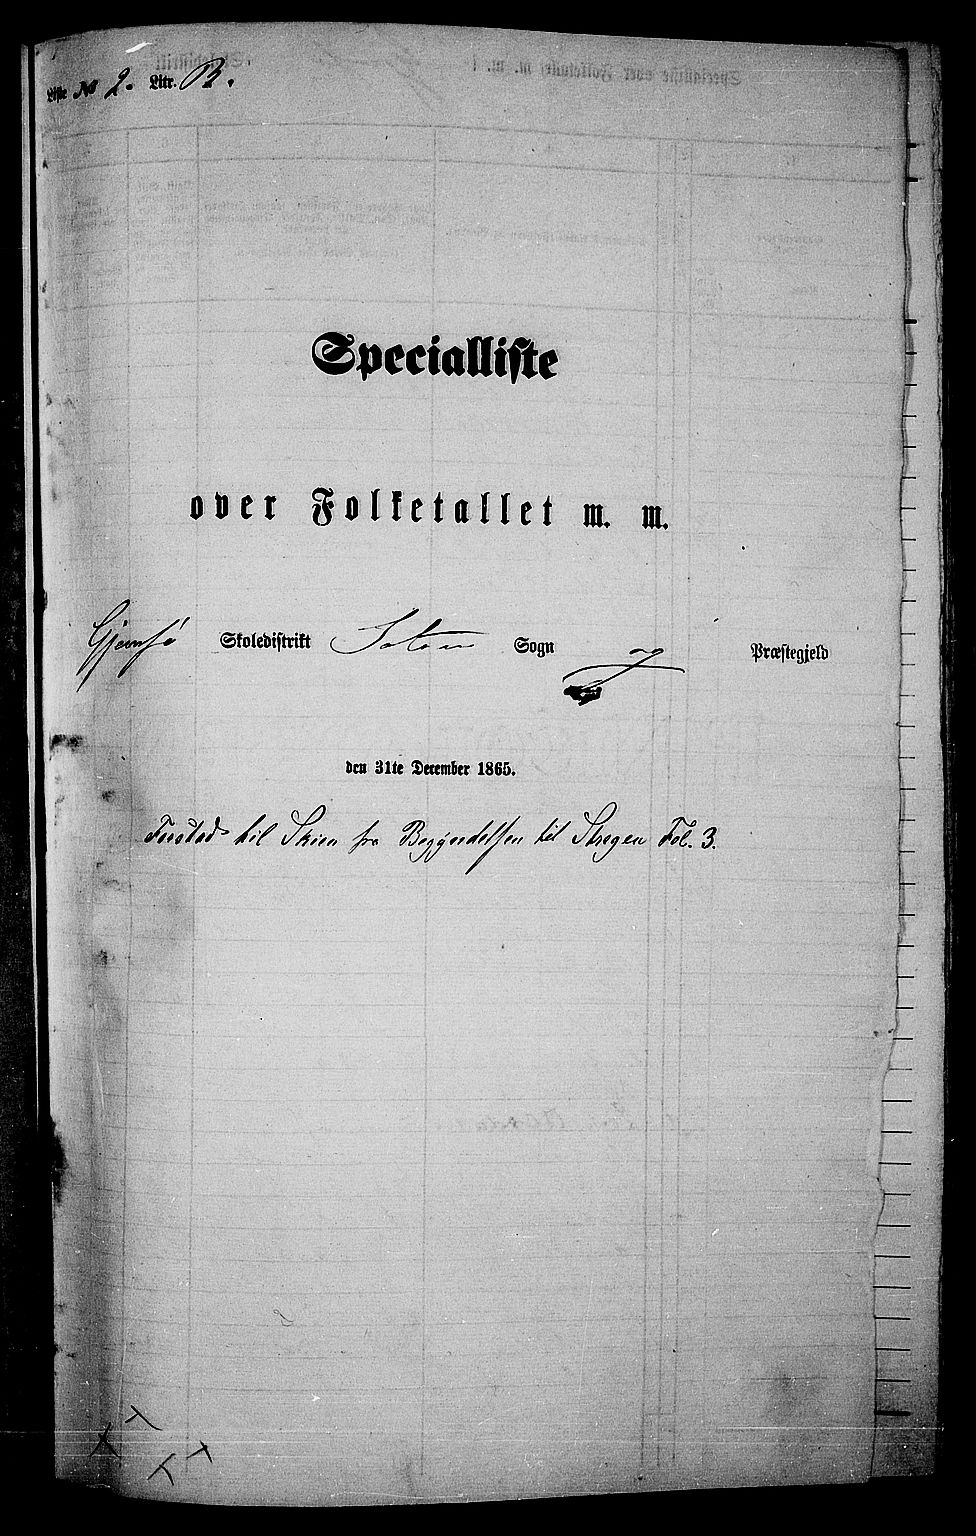 Liste No 2. Litr. B.
Specialliste
over Folketallet m. m.
Gjemsø Skoledistrikt Solum Sogn og Præstegjeld
den 31te December 1865.
Forstad til Skien fra Begyndelsen til Stregen Fol. 3.